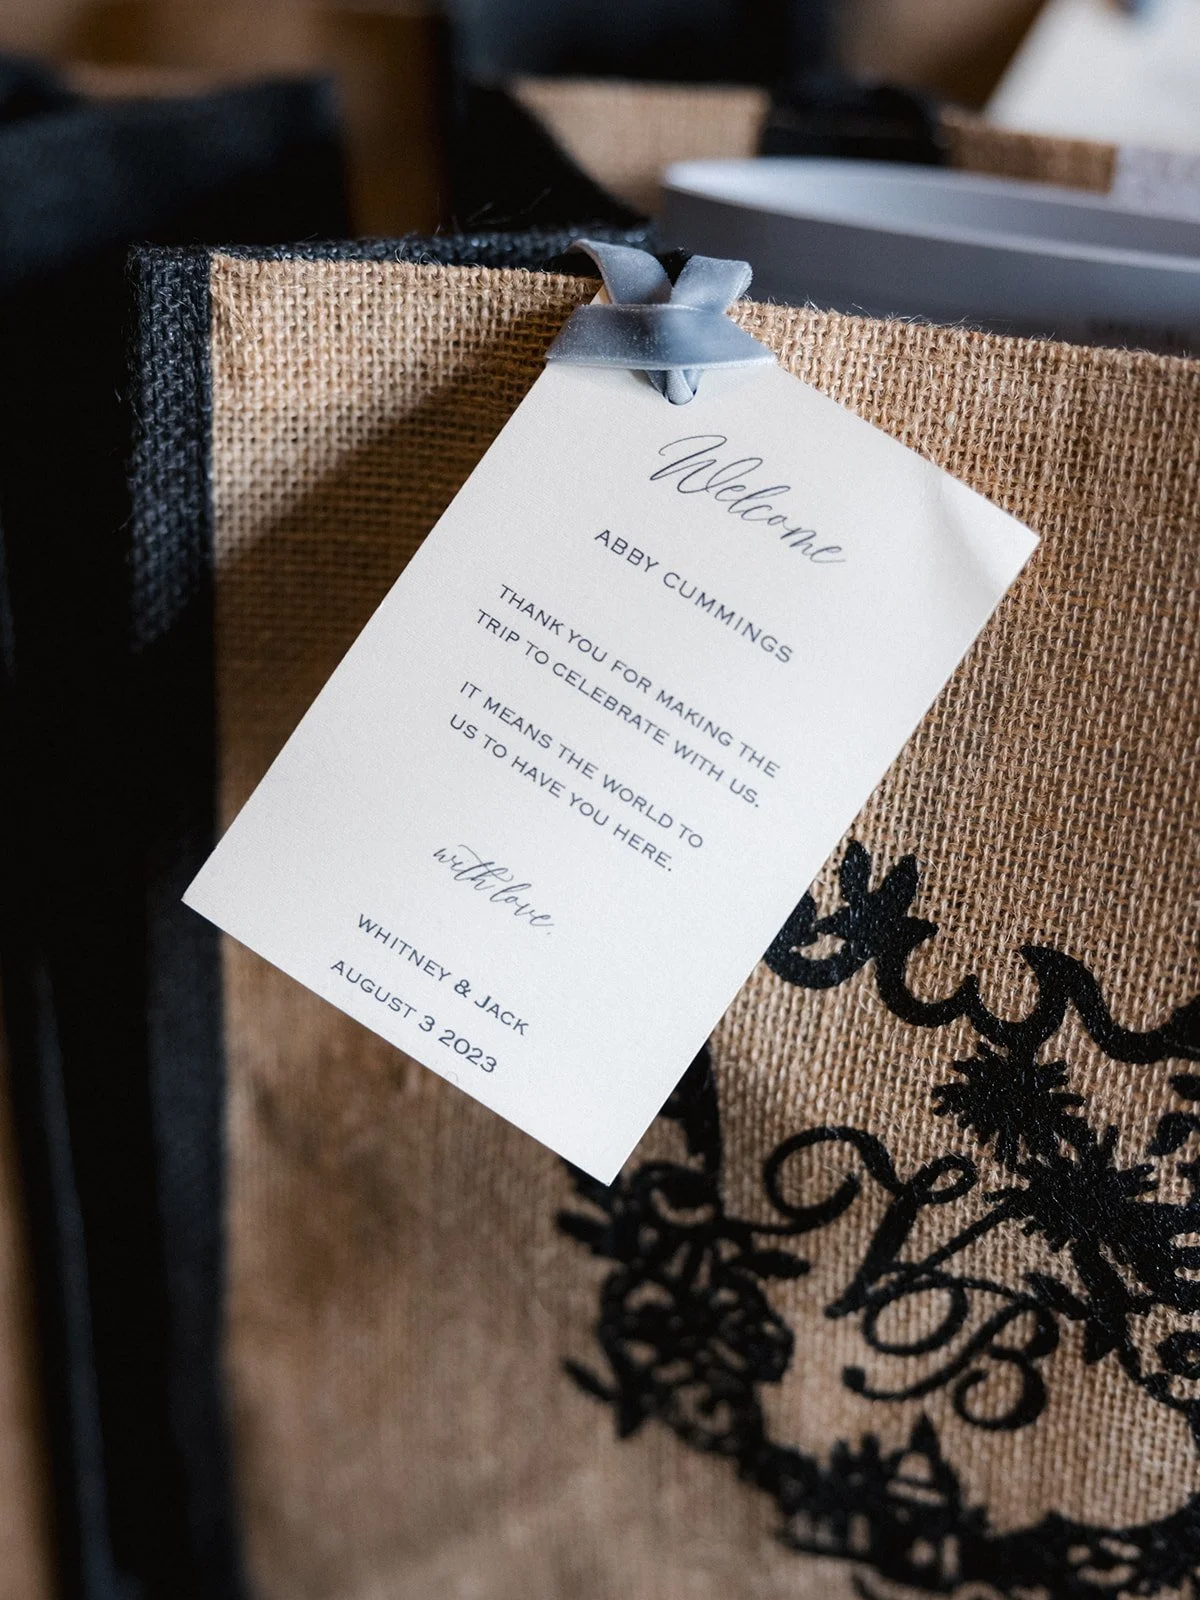 Welcome
ABBY CUMMINGS
THANK YOU FOR MAKING THE
TRIP TO CELEBRATE WITH US.
IT MEANS THE WORLD TO
US TO HAVE YOU HERE.
with love,
WHITNEY & JACK
AUGUST 3 2023